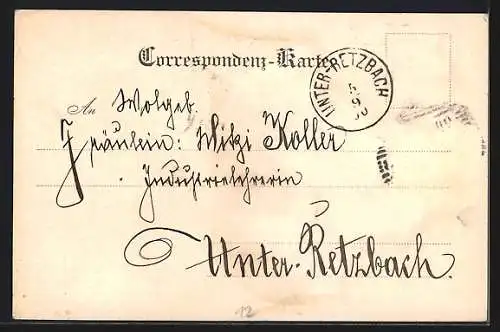 Correspondenz-Karte
UNTER-RETZBACH
5
9
00
An Wolgeb.
Fräulein: Mitzi Koller
Industrielehrerin
Unter-Retzbach.
12